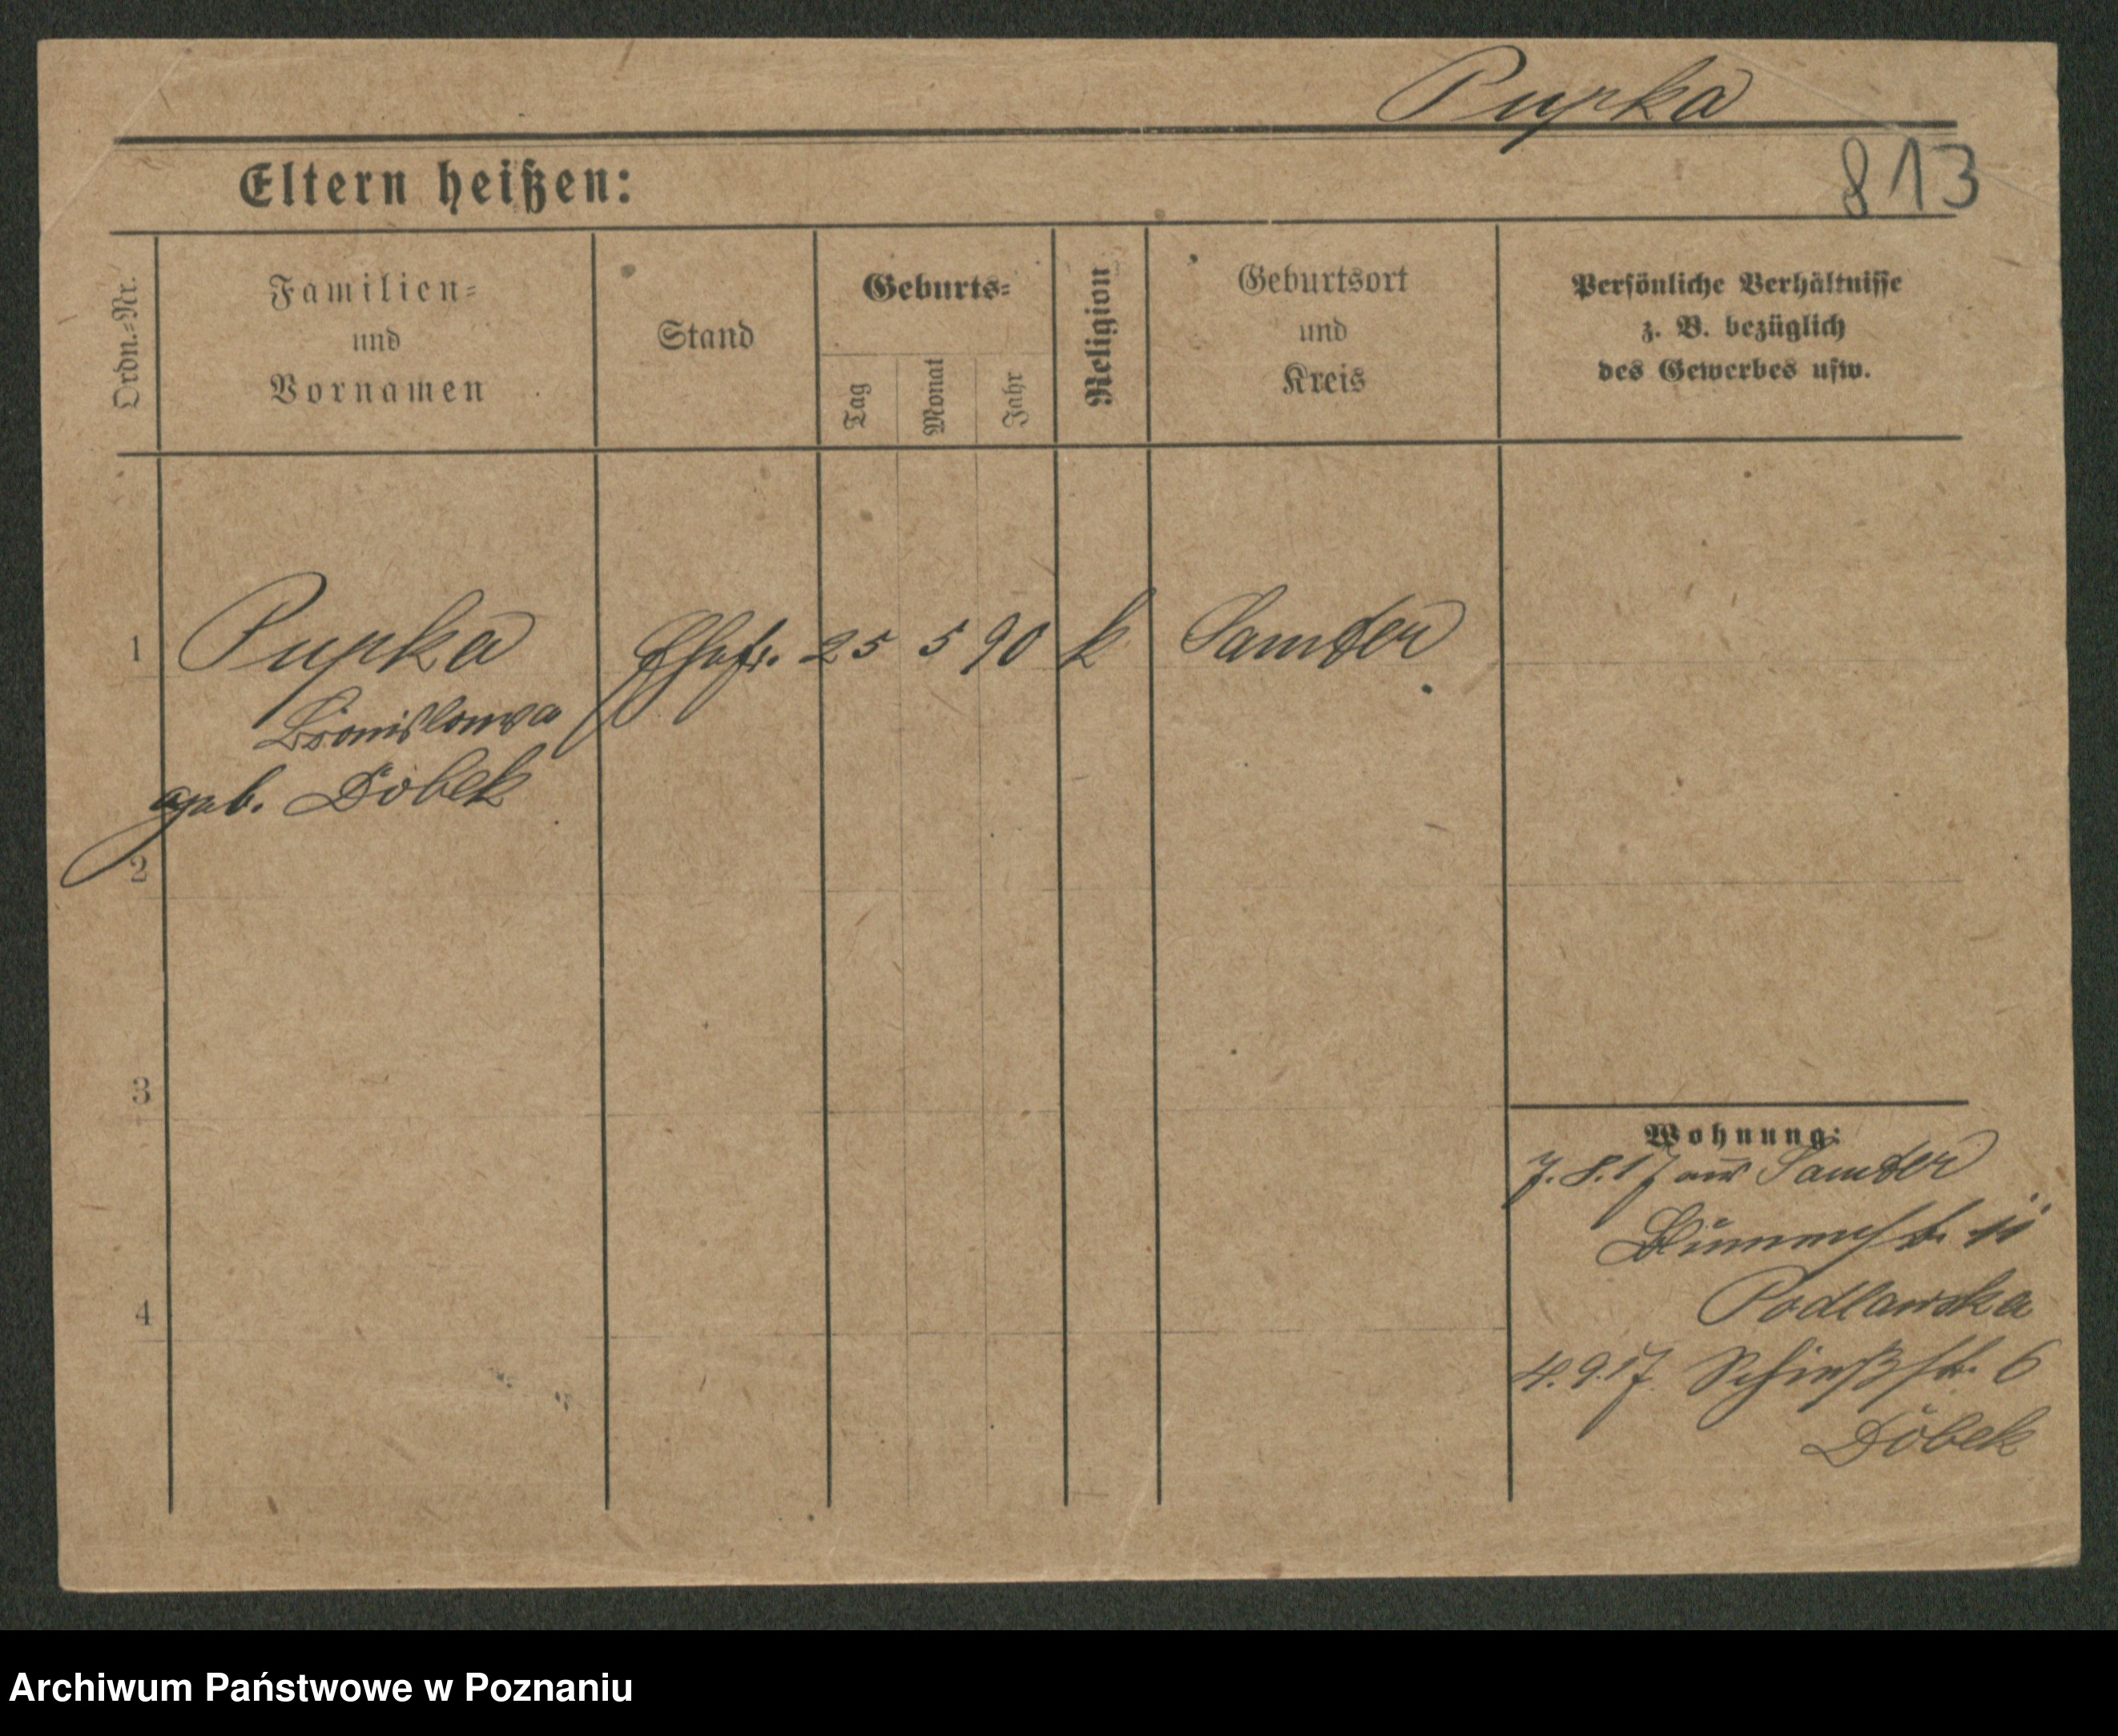 Pupka
Eltern heißen:
813
Ordn.=Nr.
Familien=
und
Vornamen
Stand
Geburts=
Tag
Monat
Jahr
Religion
Geburtsort
und
Kreis
Persönliche Verhältnisse
z. B. bezüglich
des Gewerbes usw.
1 Pupka Ehefr. 25 5 90 k Samter
Bronislawa
geb. Dobek
2
3
4
Wohnung:
7.8.17 aus Samter
Blumenstr.
Podlawska
4.9.17 Schießstr. 6
Dobek
Archiwum Państwowe w Poznaniu